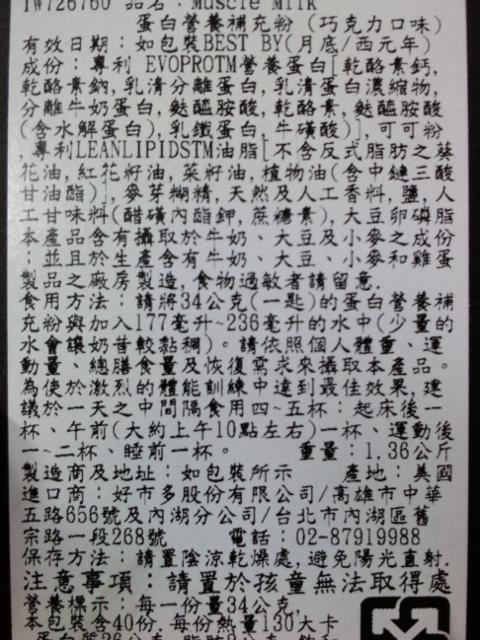 1W726760 品名：Muscle Milk
蛋白營養補充粉（巧克力口味）
有效日期：如包裝BEST BY(月底/西元年)
成份：專利 EVOPROTM營養蛋白[乾酪素鈣,
乾酪素鈉,乳清分離蛋白,乳清蛋白濃縮物,
分離牛奶蛋白,麩醯胺酸,乾酪素,麩醯胺酸
(含水解蛋白),乳鐵蛋白,牛磺酸)],可可粉
,專利LEANLIPIDSTM油脂[不含反式脂肪之葵
花油,紅花籽油,菜籽油,植物油(含中鏈三酸
甘油酯)],麥芽糊精,天然及人工香料,鹽,人
工甘味料(醋磺內酯鉀,蔗糖素),大豆卵磷脂
本產品含有攝取於牛奶、大豆及小麥之成份
；並且於生產含有牛奶、大豆、小麥和雞蛋
製品之廠房製造,食物過敏者請留意.
食用方法：請將34公克(一匙)的蛋白營養補
充粉與加入177毫升~236毫升的水中(少量的
水會讓奶昔較黏稠)。請依照個人體重、運
動量、總膳食量及恢復需求來攝取本產品。
為使於激烈的體能訓練中達到最佳效果,建
議於一天之中間隔食用四~五杯：起床後一
杯、午前(大約上午10點左右)一杯、運動後
一~二杯、睡前一杯。 重量：1.36公斤
製造商及地址：如包裝所示 產地：美國
進口商：好市多股份有限公司/高雄市中華
五路656號及內湖分公司/台北市內湖區舊
宗路一段268號 電話：02-87919988
保存方法：請置陰涼乾燥處,避免陽光直射.
注意事項：請置於孩童無法取得處
營養標示：每一份量34公克,
本包裝含40份.每份熱量130大卡